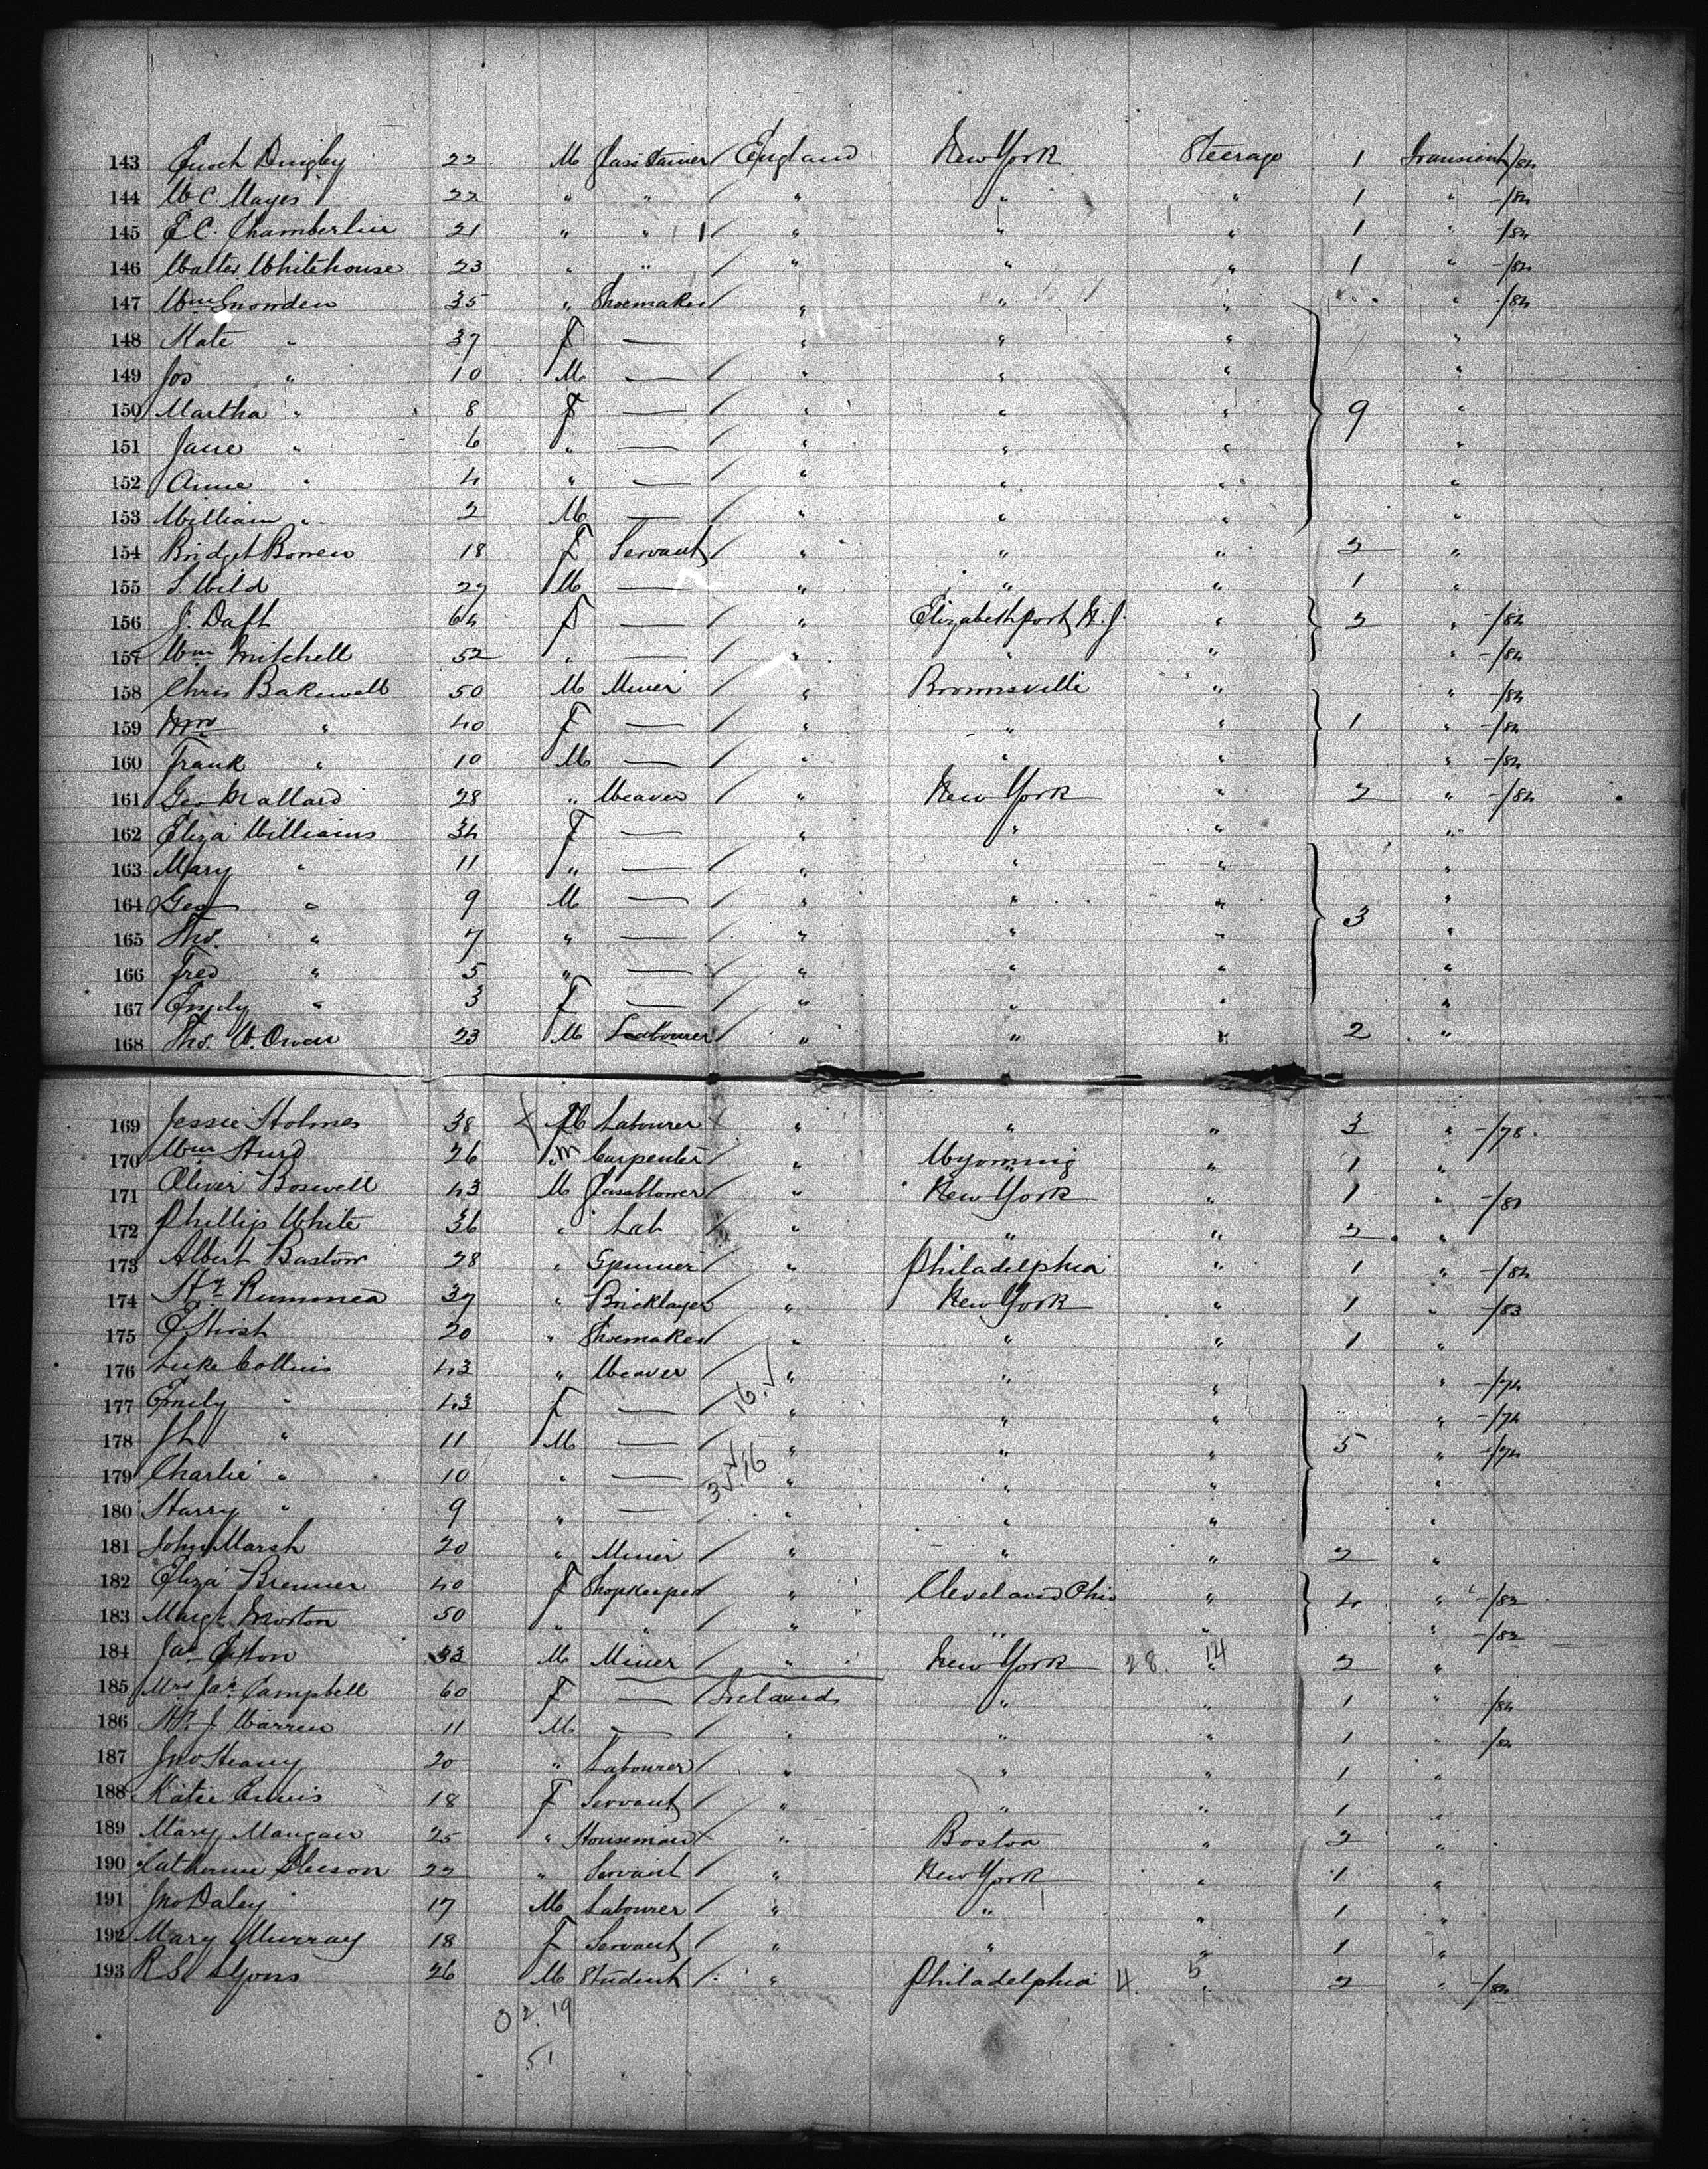 143 Enoch Dingley 22 M Glass Stainer / England New York Steerage 1 Transient -/84
144 W C Mayes 22 " " / " " " 1 " -/84
145 E C. Chamberlin 21 " " / " " " 1 " -/84
146 Walter Whitehouse 23 " " / " " " 1 " -/84
147 Wm Snowden 35 " Shoemaker / " " " " -/84
148 Kate " 37 F — " " " "
149 Jos " 10 M — / " " " "
150 Martha " 8 F — / " " " 9 "
151 Jane " 6 " — / " " " "
152 Anne " 4 " — / " " " "
153 William " 2 M — / " " " "
154 Bridget 18 F Servant / " " " 2 "
155 S. Wild 27 M — " " " 1 "
156 J. Daft 64 F — / " Elizabethport N. J. " 2 " -/84
157 Wm Mitchell 52 " — / " " " " -/84
158 Chris Bakewell 50 M Miner / " Brownsville " " -/84
159 Mrs " 40 F — / " " " 1 " -/84
160 Frank " 10 M — / " " " " -/84
161 Geo Mallard 28 " Weaver / " New York " 2 " -/84
162 Eliza Williams 34 F — / " " " "
163 Mary " 11 " — / " " " "
164 Geo " 9 M — / " " " "
165 Tho. " 7 " — / " " " 3 "
166 Fred " 5 " — / " " " "
167 Emily " 3 F — / " " " "
168 Tho. W. Owen 23 M Labourer / " " " 2 "
169 Jessie Holmes 38 M Labourer " " " 3 " -/78.
170 Wm Hurd 26 M Carpenter / " Wyoming " 1 "
171 Oliver Boswell 43 M Glassblower / " New York " 1 " -/81
172 Phillip White 36 " Lab / " " " 2 "
173 Albert Bastow 28 " Spinner / " Philadelphia " 1 " -/84
174 Hy 37 " Bricklayer / " New York " 1 " -/83
175 E Hirst 20 " Shoemaker / " " " 1 "
176 Luke Collins 43 " Weaver / " " " " -/74
177 Emily " 43 F — / 16. ✓ " " " " -/74
178 " 11 M — / " " " 5 " -/74
179 Charlie " 10 " — / 16 " " " "
180 Harry " 9 " — " " " "
181 John Marsh 20 " Miner / " " " 2 "
182 Eliza Brenner 40 F Shopkeeper / " Cleveland Ohio " 4 " -/82
183 Margt Morton 50 " " / " " " " -/82
184 Jas Exton 33 M Miner / " New York 28. 14 " 2 "
185 Mrs Jas Campbell 60 F — / Ireland " " 1 " /84
186 J. Warren 11 M — / " " " 1 " -/84
187 Jno Heany 20 " Labourer / " " " 1 "
188 Katie Ennis 18 F Servant / " " " 1 "
189 Mary Mangan 25 " Housemaid " Boston " 2 "
190 Catherine Gleeson 22 " Servant / " New York " 1 "
191 Jno Daley 17 M Labourer / " " " 1 "
192 Mary Murray 18 F Servant / " " " 1 "
193 R S. Lyons 26 M Student / " Philadelphia 4. 5 " 2 " -/84
32.19
51